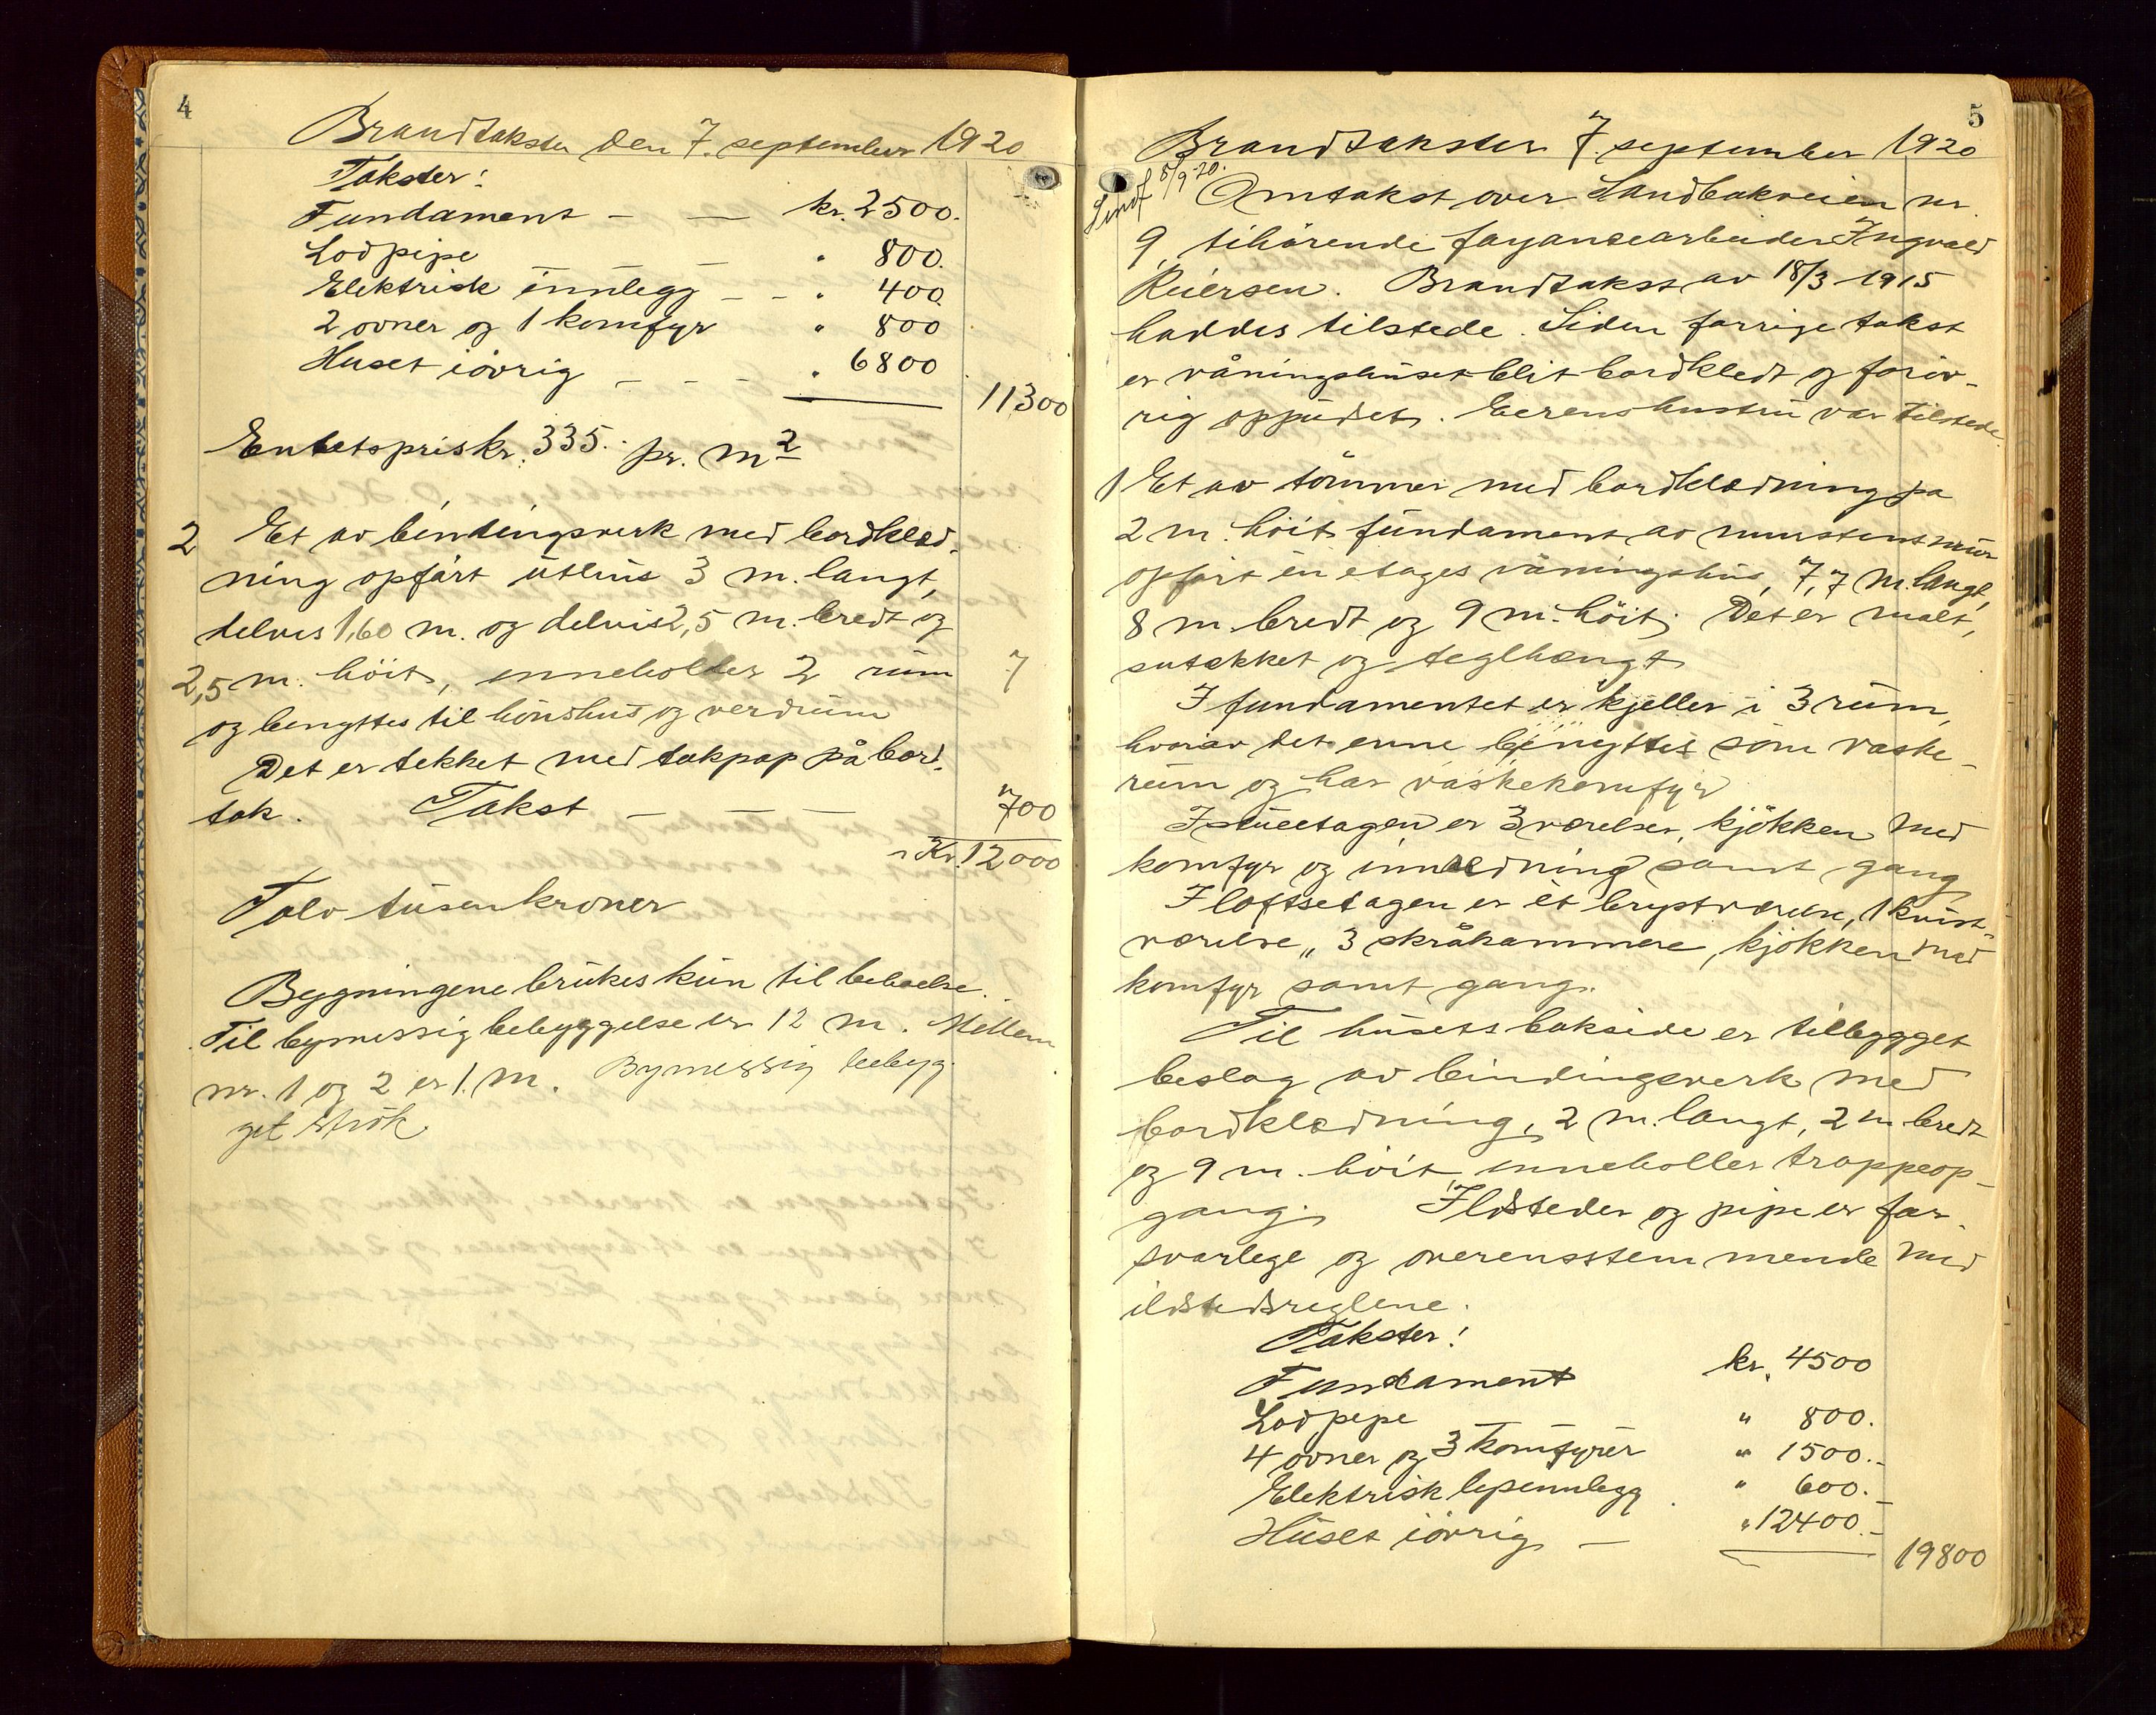 4
Brandtakster den 7. september 1920
Takster:
Fundament — — kr. 2500.
Lodpipe — — " 800.
Elektrisk innlegg — — " 400.
2 ovner og 1 komfyr " 800
Huset iövrig — — — " 6800
11300
Enhetspris kr. 335.- pr. m2
2 Et av bindingsverk med bordklæd-
ning opfört uthus 3 m. langt,
delvis 1,60 m. og delvis 2,5 m. bredt og
2,5 m. höit, inneholder 2 rum 7
og benyttes til hönshus og vedrum
Det er tekket med takpap på bord-
tak. Takst — — — 700
Kr. 12000
Tolv tusen kroner
Bygningene brukes kun til beboelse.
Til bymessig bebyggelse er 12 m. Mellem
nr. 1 og 2 er 1. m. Bymessig bebyg-
get strök
5
Brandtakster 7. september 1920
Omtakst over Sandbakveien nr.
9, tihörende fayansearbeider Ingvald
Reiersen. Brandtakst av 18/3 1915
haddes tilstede. Siden forrige takst
er våningshuset blit bordkledt og foriv-
rig oppudset. Eierens hustru var tilstede.
1 Et av tömmer med bordklædning på
2 m. höit fundament av murstensmur
opfört en etages våningshus, 7,7 m. langt,
8 m. bredt og 9 m. höit. Det er malt,
sutekket og teglhængt
I fundamentet er kjeller i 3 rum,
hvorav det enne benyttes som vaske-
rum og har vaskekomfyr
I stueetagen er 3 værelser, kjökken med
komfyr og innredning samt gang
I loftsetagen er et brystværelse, 1 kvist-
værelse, 3 skråkammere, kjökken med
komfyr samt gang.
Til husets bakside er tilbygget
beslag av bindingsverk med
bordklædning, 2 m. langt, 2 m bredt
og 9 m. höit inneholler trappeop-
gang. Ildsteder og pipe er for-
svarlege og overensstemmende med
ildstedsreglene.
Takster:
Fundament kr. 4500
Lodpipe " 800.
4 ovner og 3 komfyrer " 1500.-
Elektrisk lysinnlegg " 600.-
Huset iövrig — " 12400.-
19800